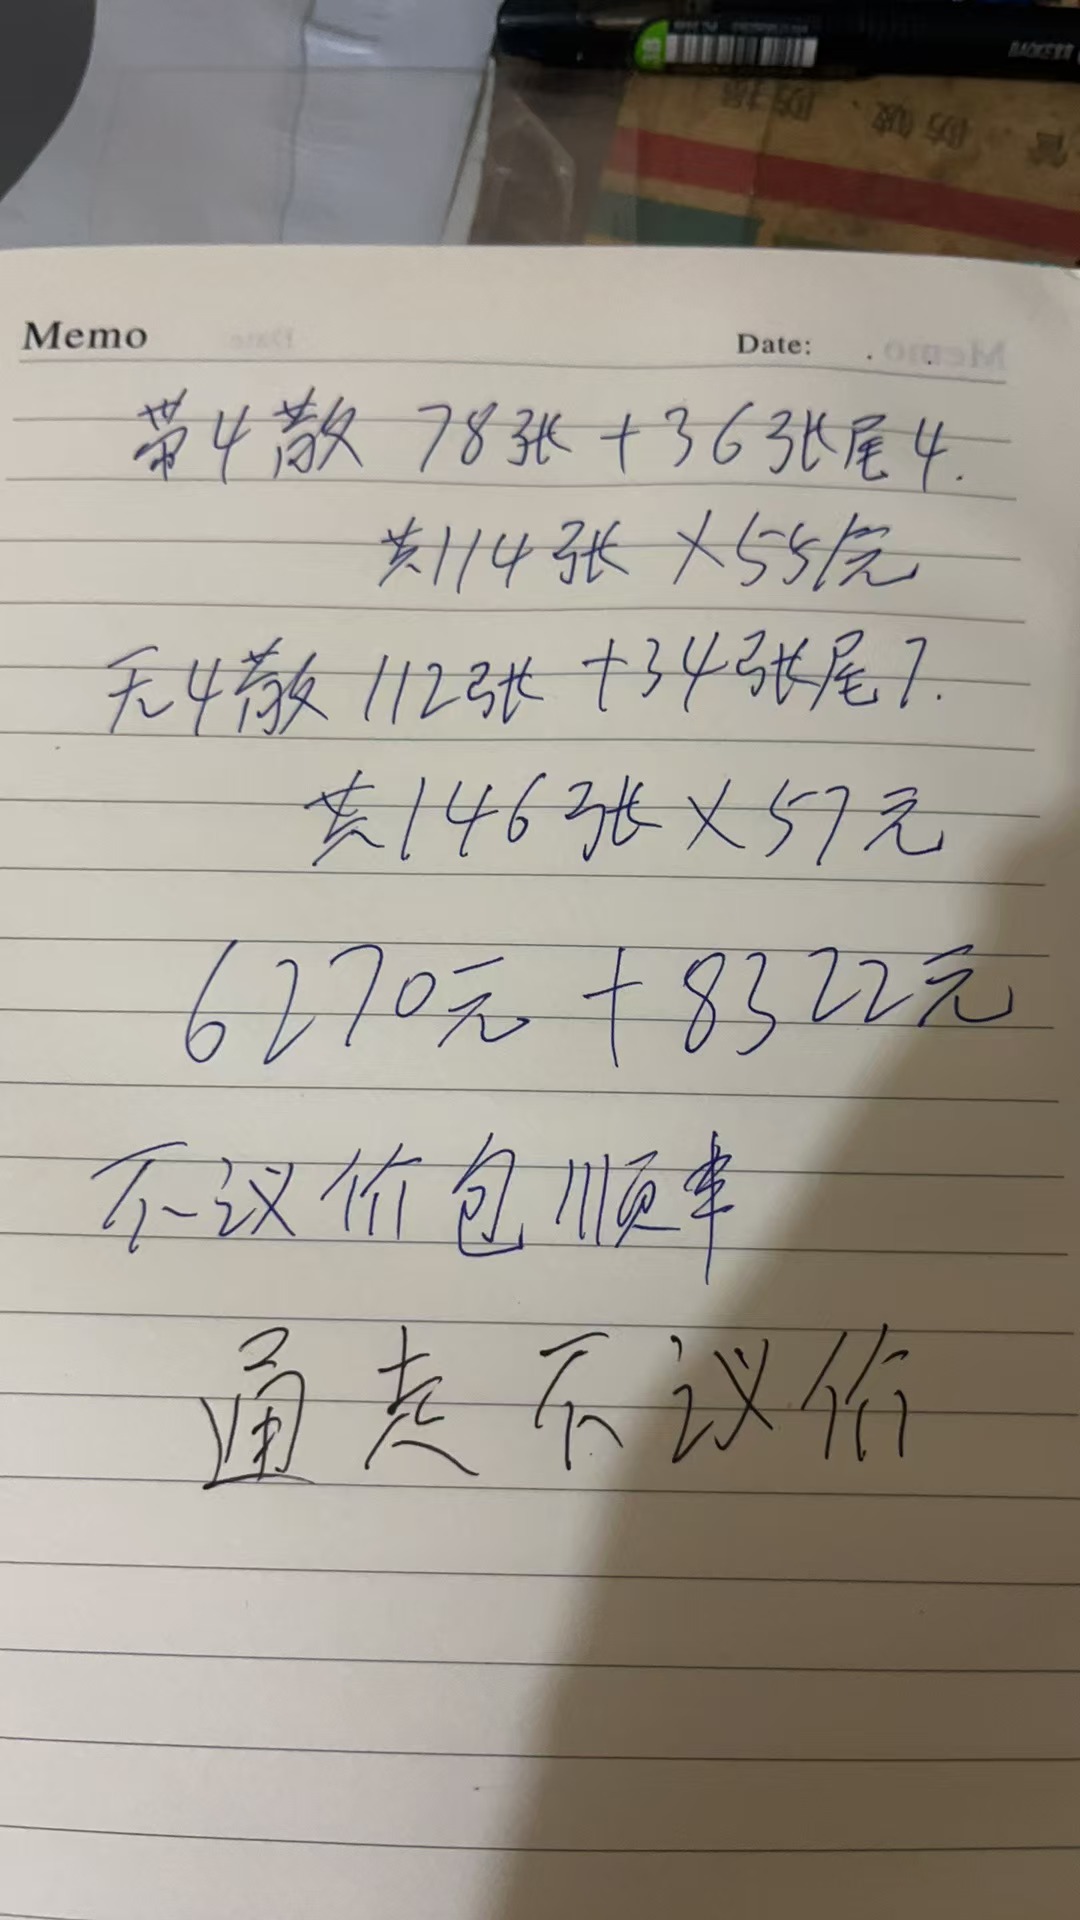 Memo Date:
带4散 78张 + 36张尾4.
共114张 ×55/元
无4散 112张 +34张尾7.
共146张 ×57元
6270元 + 8322元
不议价包顺丰
通走不议价